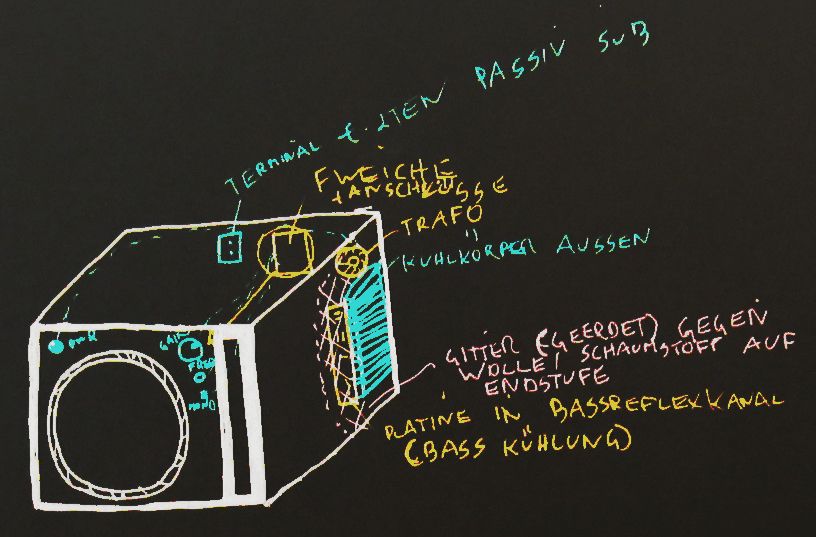 TERMINAL F. 2TEN PASSIV SUB
F WEICHE
+ ANSCHLÜSSE
TRAFO
KÜHLKÖRPER AUSSEN
PWR
GAIN
FREQ
MONO
GITTER (GEERDET) GEGEN
WOLLE, SCHAUMSTOFF AUF
ENDSTUFE
PLATINE IN BASSREFLEXKANAL
(BASS KÜHLUNG)